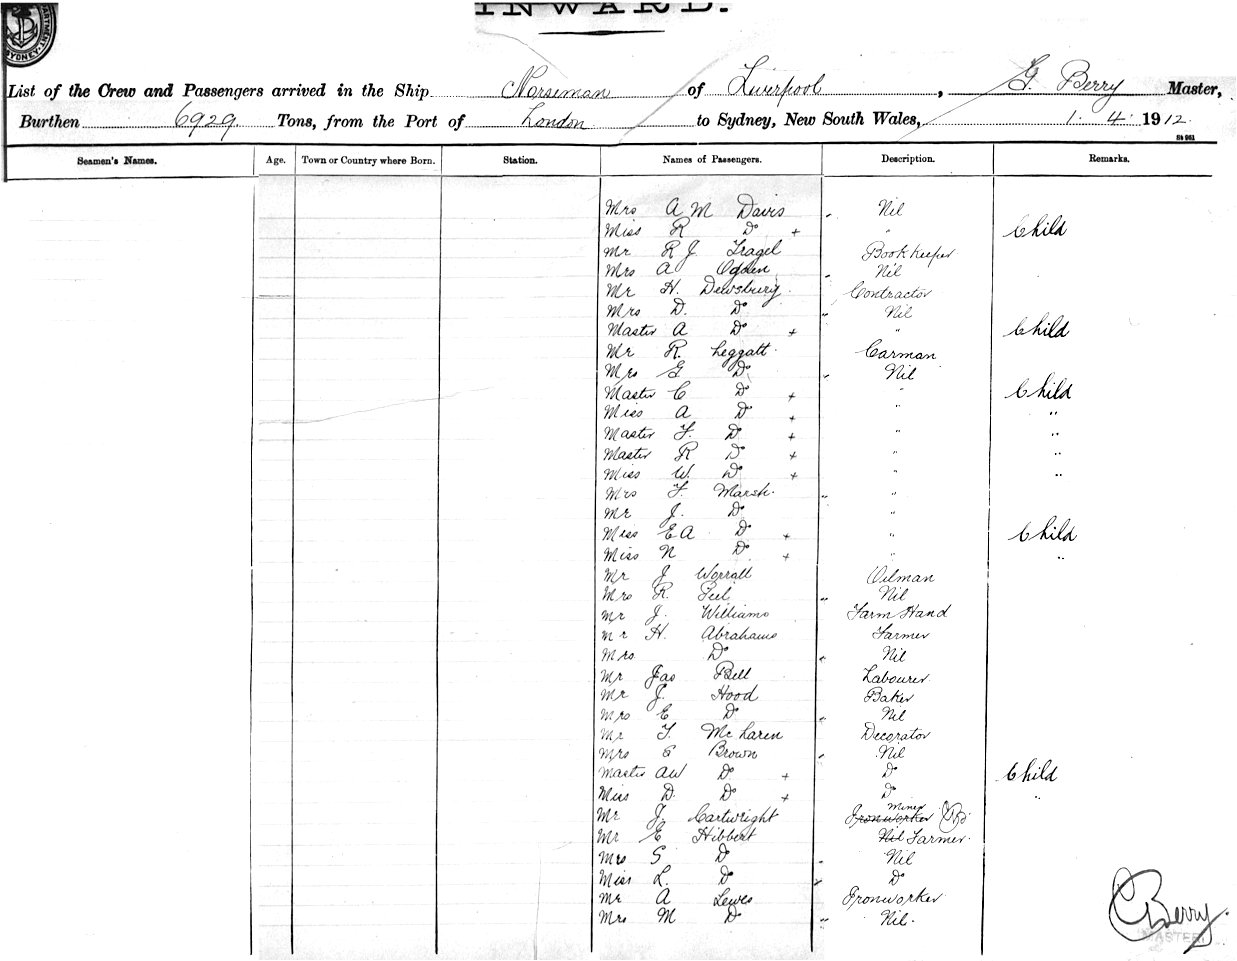 INWARD.
SYDNEY
List of the Crew and Passengers arrived in the Ship Norseman of Liverpool, G. Berry Master,
Burthen 6929 Tons, from the Port of London to Sydney, New South Wales, 1. 4. 1912.
St 961
Seamen's Names. Age. Town or Country where Born. Station. Names of Passengers. Description. Remarks.
Mrs A M Davis " Nil
Miss R Do + " Child
Mr R J Fragel Book keeper
Mrs A Ogden " Nil
Mr H. Dewsbury. Contractor
Mrs D. Do " Nil
Master A Do + " Child
Mr R. Leggatt. Carman
Mrs G Do " Nil
Master C Do + " Child
Miss A Do + " "
Master F. Do + " "
Master R Do + " "
Miss W. Do + " "
Mrs F. Marsh. " "
Mr J. Do "
Miss E A Do + " Child
Miss N Do + " "
Mr J Worrall Oilman
Mrs R. Peel " Nil
Mr J. Williams Farm Hand
Mr H. Abrahams Farmer
Mrs Do " Nil
Mr Jas Bell Labourer
Mr J. Hood Baker
Mrs E Do " Nil
Mr F. McLaren Decorator
Mrs E Brown " Nil
Master AW Do + Do Child
Miss D. Do + Do "
Miner
Mr J. Cartwright Ironworker
Mr E Hibbert Nil Farmer.
Mrs S Do " Nil
Miss L. Do " Do
Mr A Lewes Ironworker
Mrs M Do " Nil.
G Berry.
MASTER